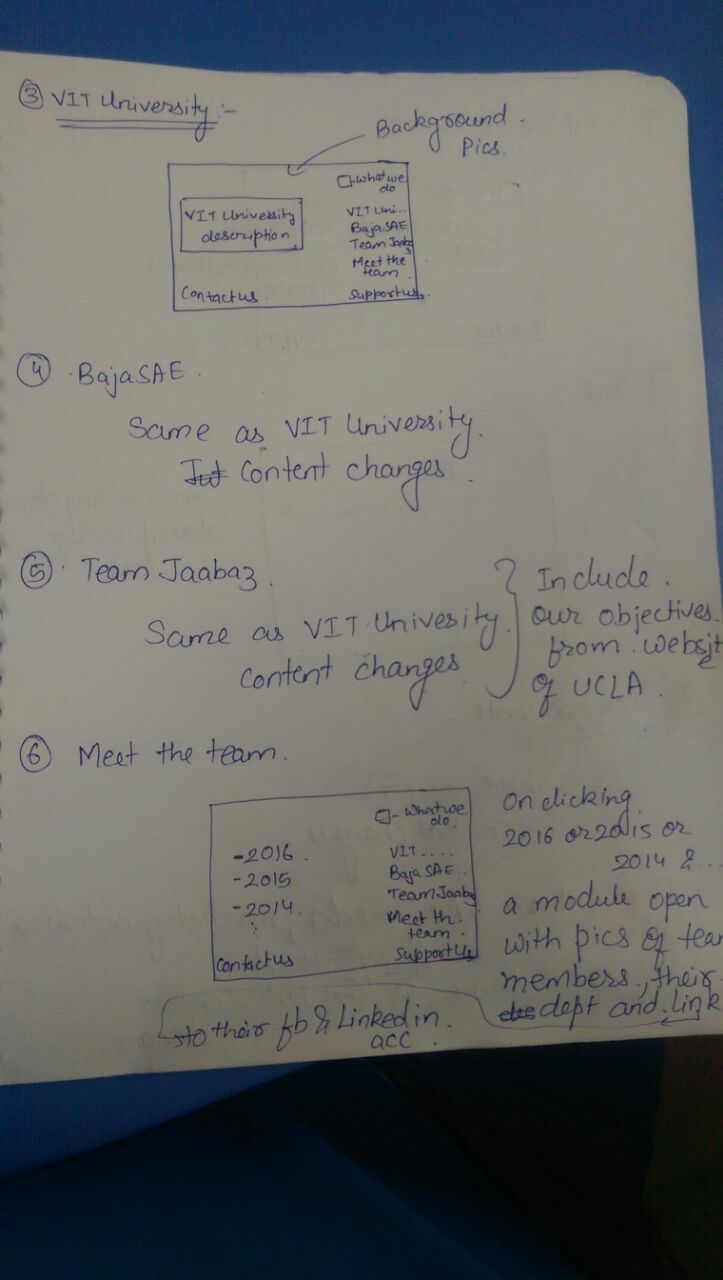 ③ VIT University :-
Background
Pics.
□-what we
do
VIT University
description
VIT Uni...
BajaSAE
Team Jaabaz
Meet the
team
Contact us.
Support us.
④ BajaSAE.
Same as VIT University.
Content changes.
⑤. Team Jaabaz.
Same as VIT Univesity.
content changes
Include.
our objectives.
from. website
of UCLA.
⑥ Meet the team.
□- What we
do.
-2016.
-2015
-2014.
VIT....
BajaSAE...
Team Jaabaz
Meet th.
team.
Contact us
Support Us
On clicking
2016 or 2015 or
2014 &...
a module open
with pics of team
members., their
dept and link
to their fb & Linked in.
acc.